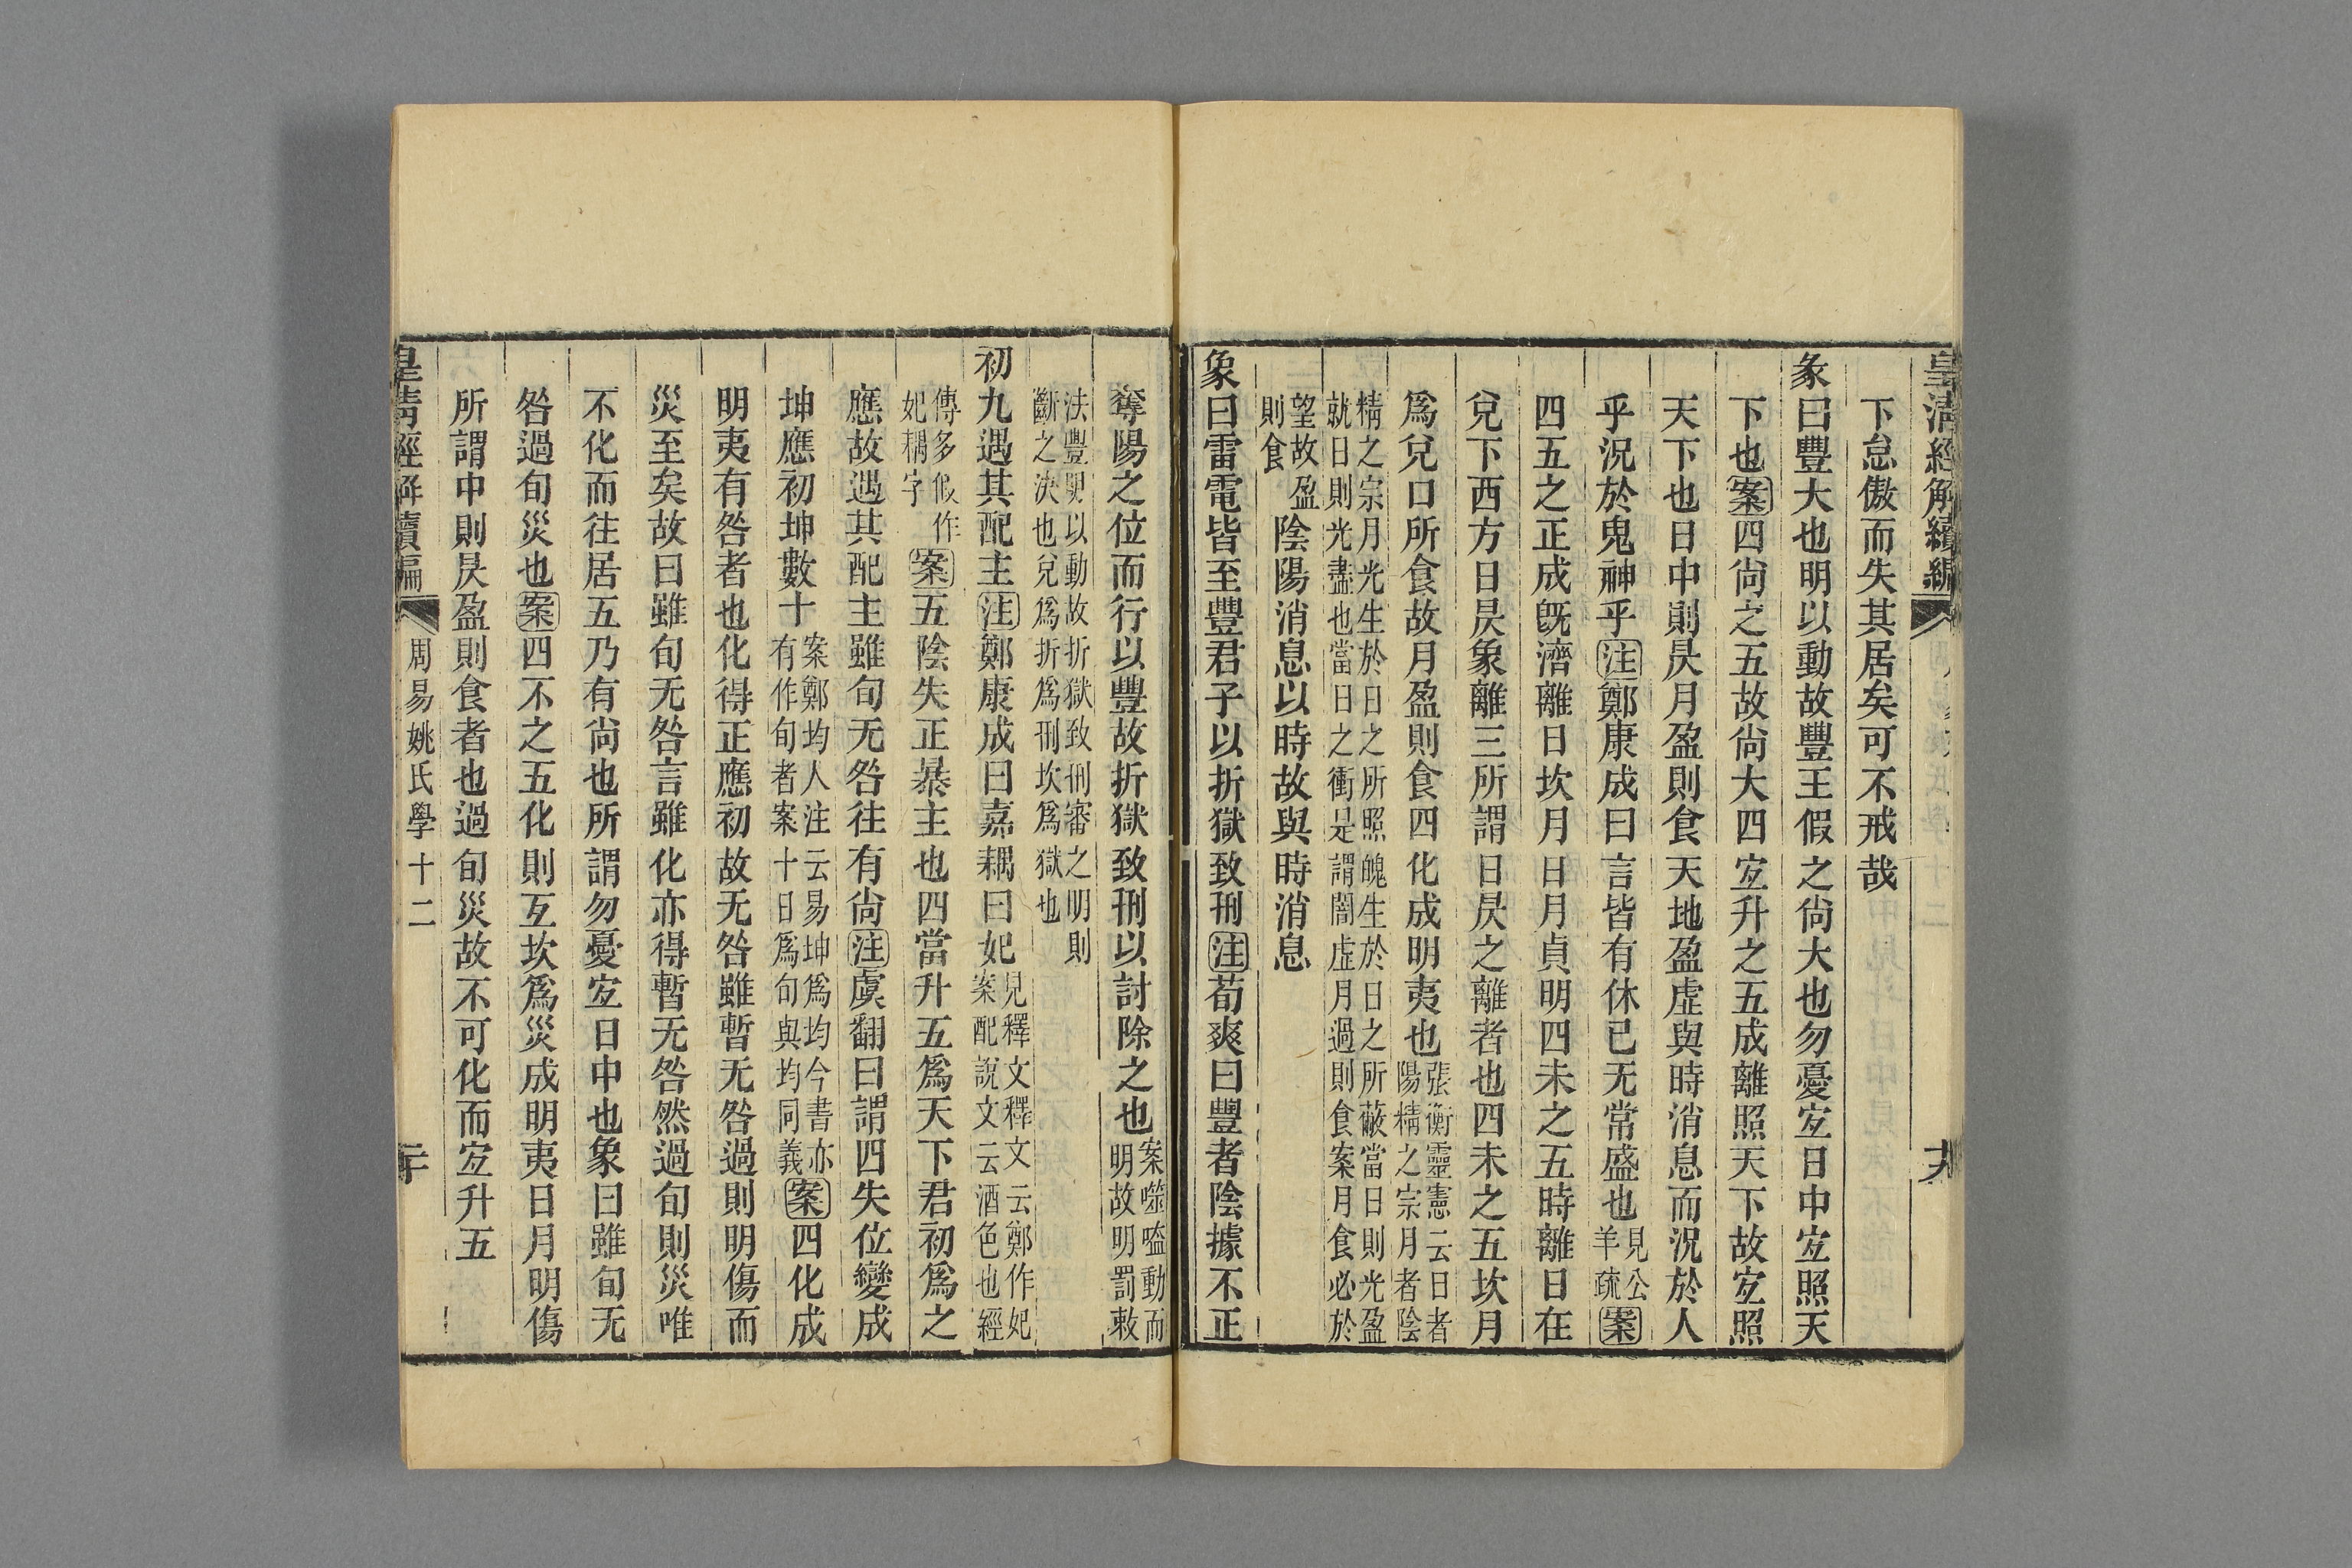 皇清經解續編
十九
下怠傲而失其居矣可不戒哉
彖曰豐大也明以動故豐王假之尙大也勿憂宐日中宐照天
下也案四尙之五故尙大四宐升之五成離照天下故宐照
天下也日中則昃月盈則食天地盈虛與時消息而況於人
乎況於鬼神乎注鄭康成曰言皆有休已无常盛也見公羊疏案
四五之正成旣濟離日坎月日月貞明四未之五時離日在
兌下西方日昃象離三所謂日昃之離者也四未之五坎月
爲兌口所食故月盈則食四化成明夷也張衡靈憲云日者陽精之宗月者陰
精之宗月光生於日之所照魄生於日之所蔽當日則光盈就日則光盡也當日之衝是謂闇虛月過則食案月食必於
望故盈則食陰陽消息以時故與時消息
象曰雷電皆至豐君子以折獄致刑注荀爽曰豐者陰據不正
奪陽之位而行以豐故折獄致刑以討除之也案噬嗑動而明故明罰敕
法豐明以動故折獄致刑審之明則斷之決也兌爲折爲刑坎爲獄也
初九遇其配主注鄭康成曰嘉耦曰妃見釋文釋文云鄭作妃案配說文云酒色也經
傳多假作妃耦字案五陰失正暴主也四當升五爲天下君初爲之
應故遇其配主雖旬无咎往有尙注虞翻曰謂四失位變成
坤應初坤數十案鄭均人注云易坤爲均今書亦有作旬者案十日爲旬與均同義案四化成
明夷有咎者也化得正應初故无咎雖暫无咎過則明傷而
災至矣故曰雖旬无咎言雖化亦得暫无咎然過旬則災唯
不化而往居五乃有尙也所謂勿憂宐日中也象曰雖旬无
咎過旬災也案四不之五化則互坎爲災成明夷日月明傷
所謂中則昃盈則食者也過旬災故不可化而宐升五
皇清經解續編
周易姚氏學十二
二十